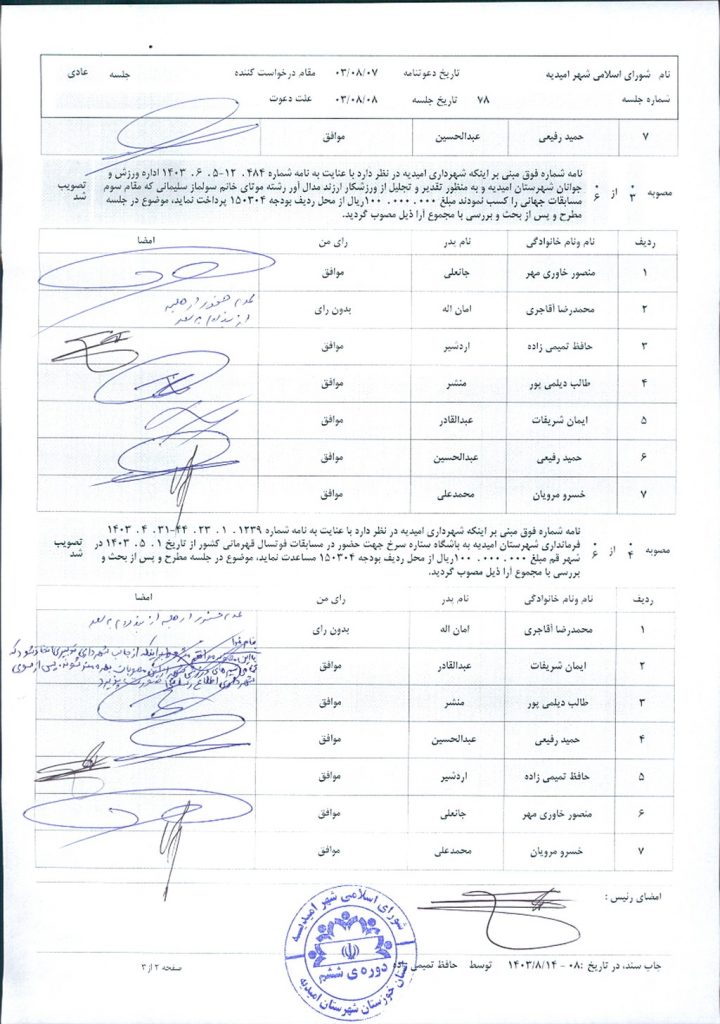 نام شورای اسلامی شهر امیدیه تاریخ دعوتنامه ۰۳/۰۸/۰۷ مقام درخواست کننده جلسه عادی
شماره جلسه ۷۸ تاریخ جلسه ۰۳/۰۸/۰۸ علت دعوت
۷ حمید رفیعی عبدالحسین موافق
مصوبه ۳ از ۶
نامه شماره فوق مبنی بر اینکه شهرداری امیدیه در نظر دارد با عنایت به نامه شماره ۴۸۴ .۱۲-۵ .۶ .۱۴۰۳ اداره ورزش و
جوانان شهرستان امیدیه و به منظور تقدیر و تجلیل از ورزشکار ارزند مدال آور رشته موتای خانم سولماز سلیمانی که مقام سوم
مسابقات جهانی را کسب نمودند مبلغ ۱۰۰.۰۰۰.۰۰۰ریال از محل ردیف بودجه ۱۵۰۳۰۴ پرداخت نماید، موضوع در جلسه
مطرح و پس از بحث و بررسی با مجموع آرا ذیل مصوب گردید.
تصویب شد
ردیف نام ونام خانوادگی نام پدر رای من امضا
۱ منصور خاوری مهر جانعلی موافق
۲ محمدرضا آقاجری امان اله بدون رای
عدم حضور در جلسه
۳ حافظ تمیمی زاده اردشیر موافق
۴ طالب دیلمی پور منشر موافق
۵ ایمان شریفات عبدالقادر موافق
۶ حمید رفیعی عبدالحسین موافق
۷ خسرو مرویان محمدعلی موافق
مصوبه ۴ از ۶
نامه شماره فوق مبنی بر اینکه شهرداری امیدیه در نظر دارد با عنایت به نامه شماره ۱۲۳۹ .۱ .۲۳ .۴۴-۳۱ .۴ .۱۴۰۳
فرمانداری شهرستان امیدیه به باشگاه ستاره سرخ جهت حضور در مسابقات فوتسال قهرمانی کشور از تاریخ ۱ .۵ .۱۴۰۳ در
شهر قم مبلغ ۱۰۰.۰۰۰.۰۰۰ریال از محل ردیف بودجه ۱۵۰۳۰۴ مساعدت نماید، موضوع در جلسه مطرح و پس از بحث و
بررسی با مجموع آرا ذیل مصوب گردید.
تصویب شد
ردیف نام ونام خانوادگی نام پدر رای من امضا
۱ محمدرضا آقاجری امان اله بدون رای
۲ ایمان شریفات عبدالقادر موافق
۳ طالب دیلمی پور منشر موافق
۴ حمید رفیعی عبدالحسین موافق
۵ حافظ تمیمی زاده اردشیر موافق
۶ منصور خاوری مهر جانعلی موافق
۷ خسرو مرویان محمدعلی موافق
امضای رئیس :
شورای اسلامی شهر امیدیه
دوره ی ششم
استان خوزستان شهرستان امیدیه
چاپ سند، در تاریخ :۰۸ - ۱۴۰۳/۸/۱۴ توسط حافظ تمیمی زاده
صفحه ۲ از ۳